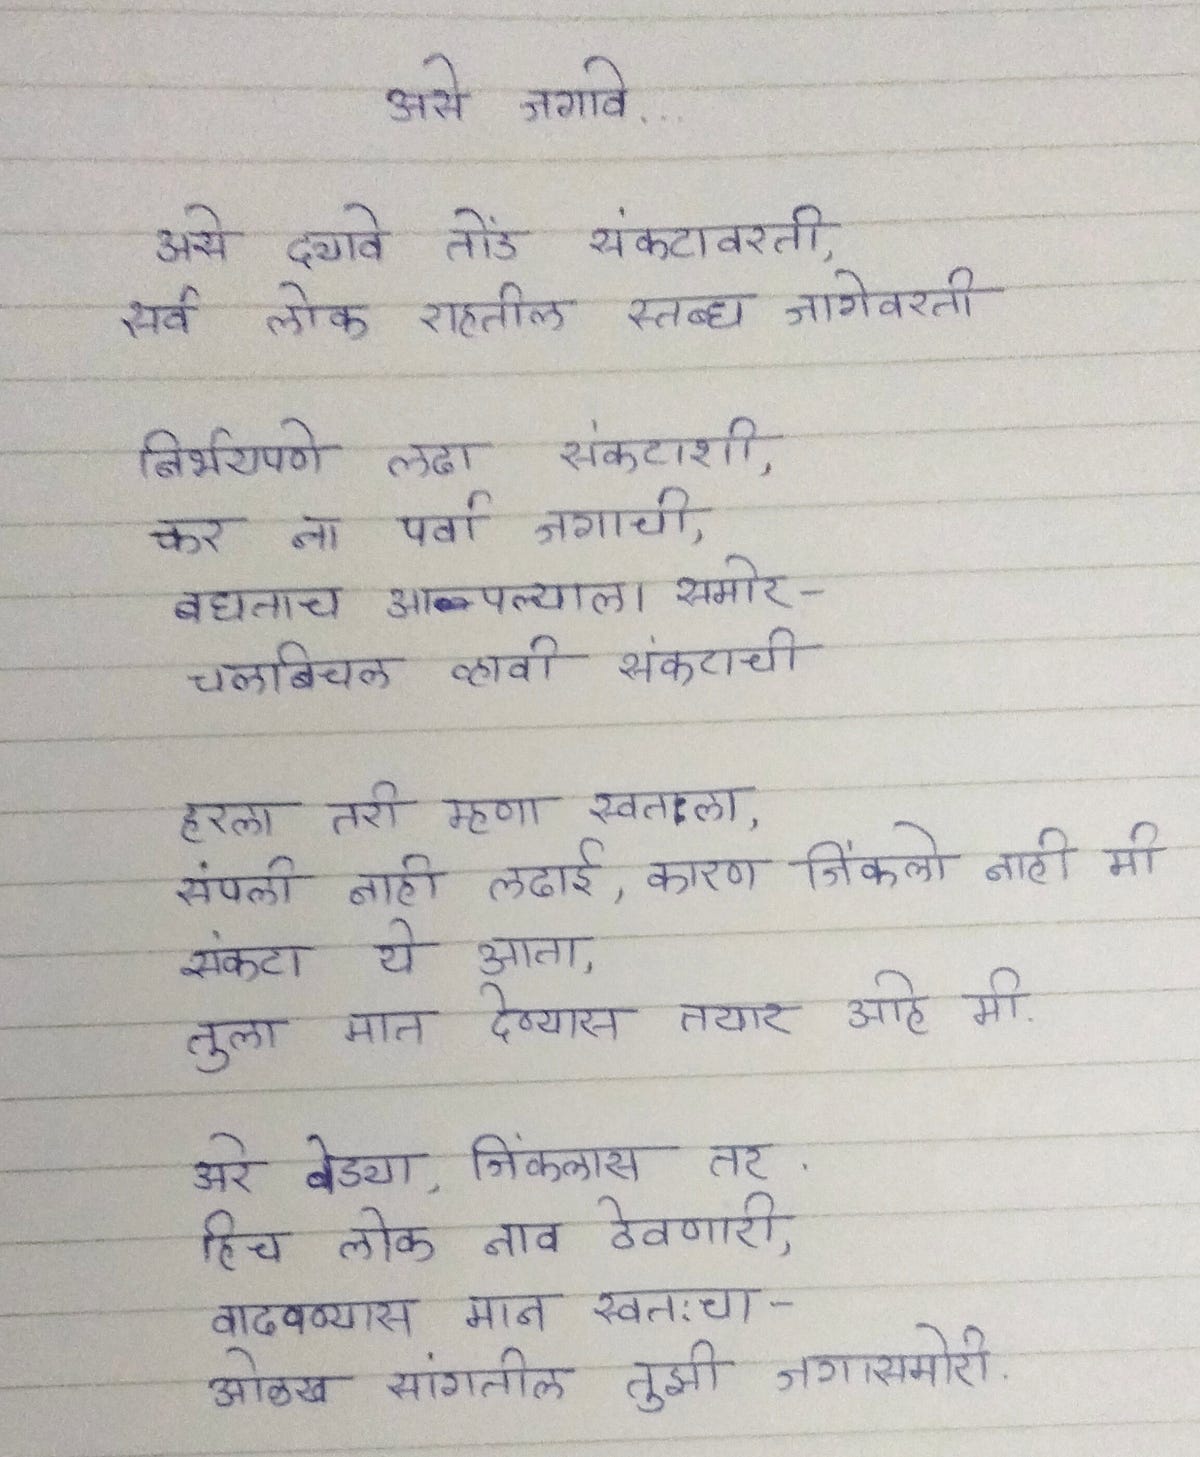 असे जगावे...
असे द्यावे तोंड संकटावरती,
सर्व लोक राहतील स्तब्ध जागेवरती
निर्भयपणे लढा संकटाशी,
कर ना पर्वा जगाची,
बघताच आपल्याला समोर -
चलबिचल व्हावी संकटाची
हरला तरी म्हणा स्वतःला,
संपली नाही लढाई, कारण जिंकलो नाही मी
संकटा ये आता,
तुला मात देण्यास तयार आहे मी.
अरे वेड्या, जिंकलास तर .
हिच लोक नाव ठेवणारी,
वाढवण्यास मान स्वतःचा -
ओळख सांगतील तुझी जगासमोरी.